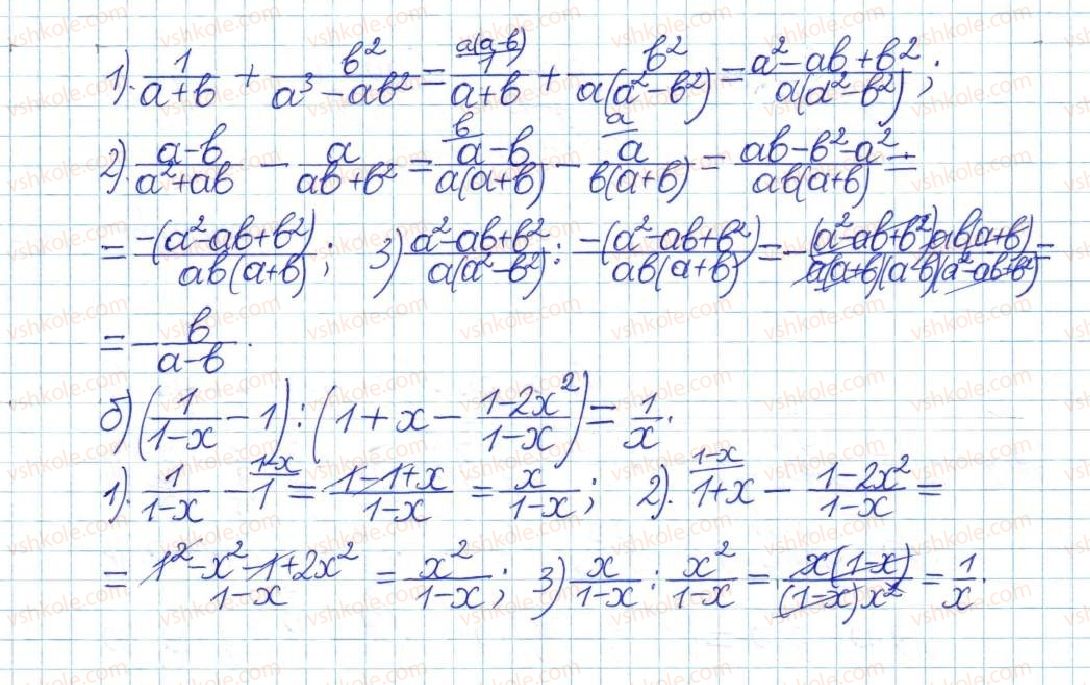 1). 1/(a+b) + b²/(a³-ab²) = (a(a-b) 1)/(a+b) + b²/(a(a²-b²)) = (a²-ab+b²)/(a(a²-b²));
2). (a-b)/(a²+ab) - a/(ab+b²) = (b a-b)/(a(a+b)) - (a a)/(b(a+b)) = (ab-b²-a²)/(ab(a+b)) =
= -(a²-ab+b²)/(ab(a+b)); 3) (a²-ab+b²)/(a(a²-b²)) : -(a²-ab+b²)/(ab(a+b)) = - (a²-ab+b²)ab(a+b)/(a(a+b)(a-b)(a²-ab+b²)) =
= - b/(a-b).
б) (1/(1-x) - 1) : (1+x - (1-2x²)/(1-x)) = 1/x.
1). 1/(1-x) - (1-x 1) = (1-1+x)/(1-x) = x/(1-x); 2). (1-x 1+x) - (1-2x²)/(1-x) =
= (1²-x²-1+2x²)/(1-x) = x²/(1-x); 3) x/(1-x) : x²/(1-x) = x(1-x)/((1-x)x²) = 1/x.